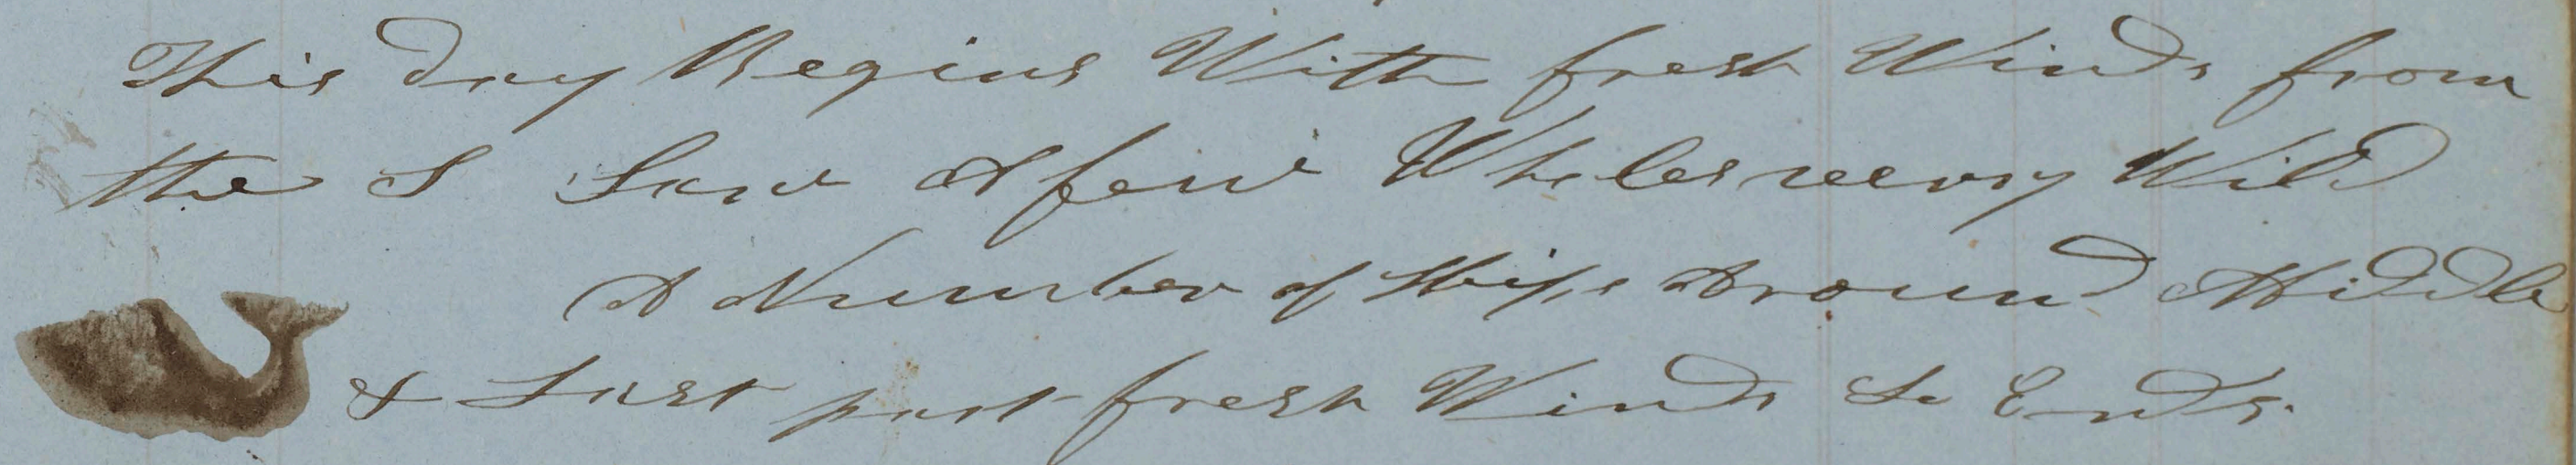 This day Begins With fresh Winds from
the S Saw A few Whales veery Wild
A Number of Ships Around Middle
& Last part fresh Winds So Ends